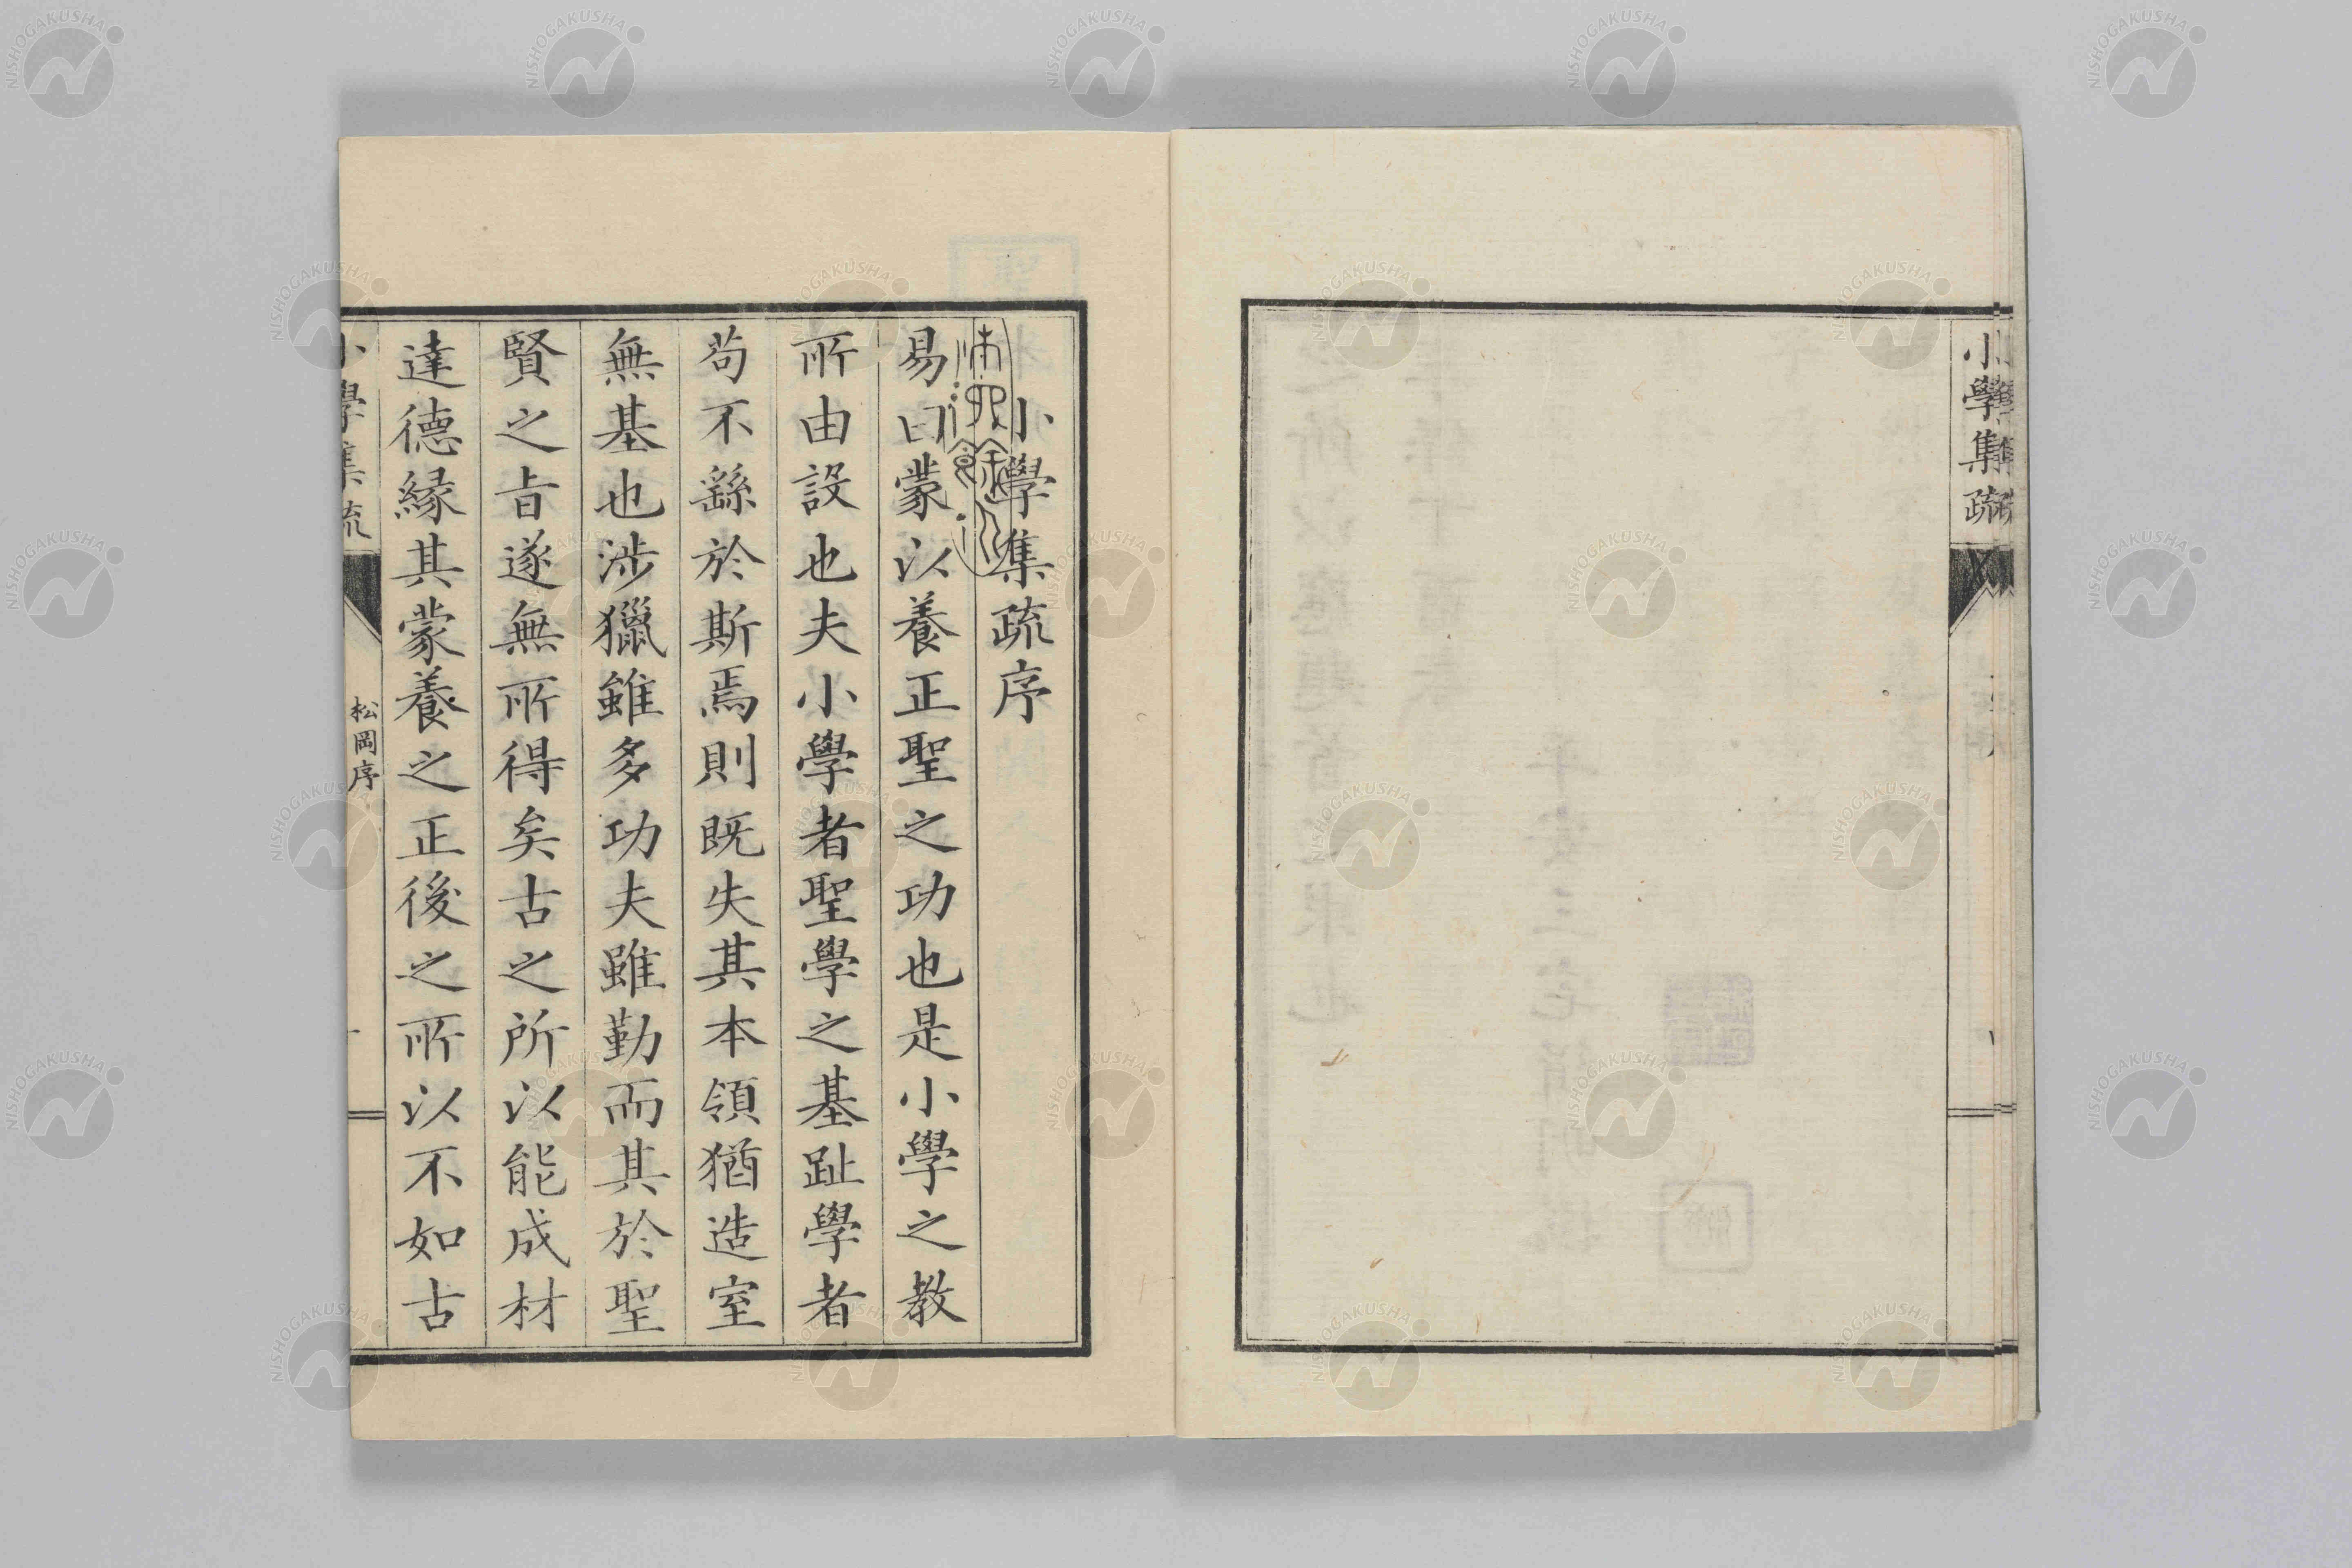 小學集疏
小學集疏序
易曰蒙以養正聖之功也是小學之教
所由設也夫小學者聖學之基趾學者
苟不繇於斯焉則既失其本領猶造室
無基也涉獵雖多功夫雖勤而其於聖
賢之旨遂無所得矣古之所以能成材
達德緣其蒙養之正後之所以不如古
小學集疏
松岡序
NISHOGAKUSHA